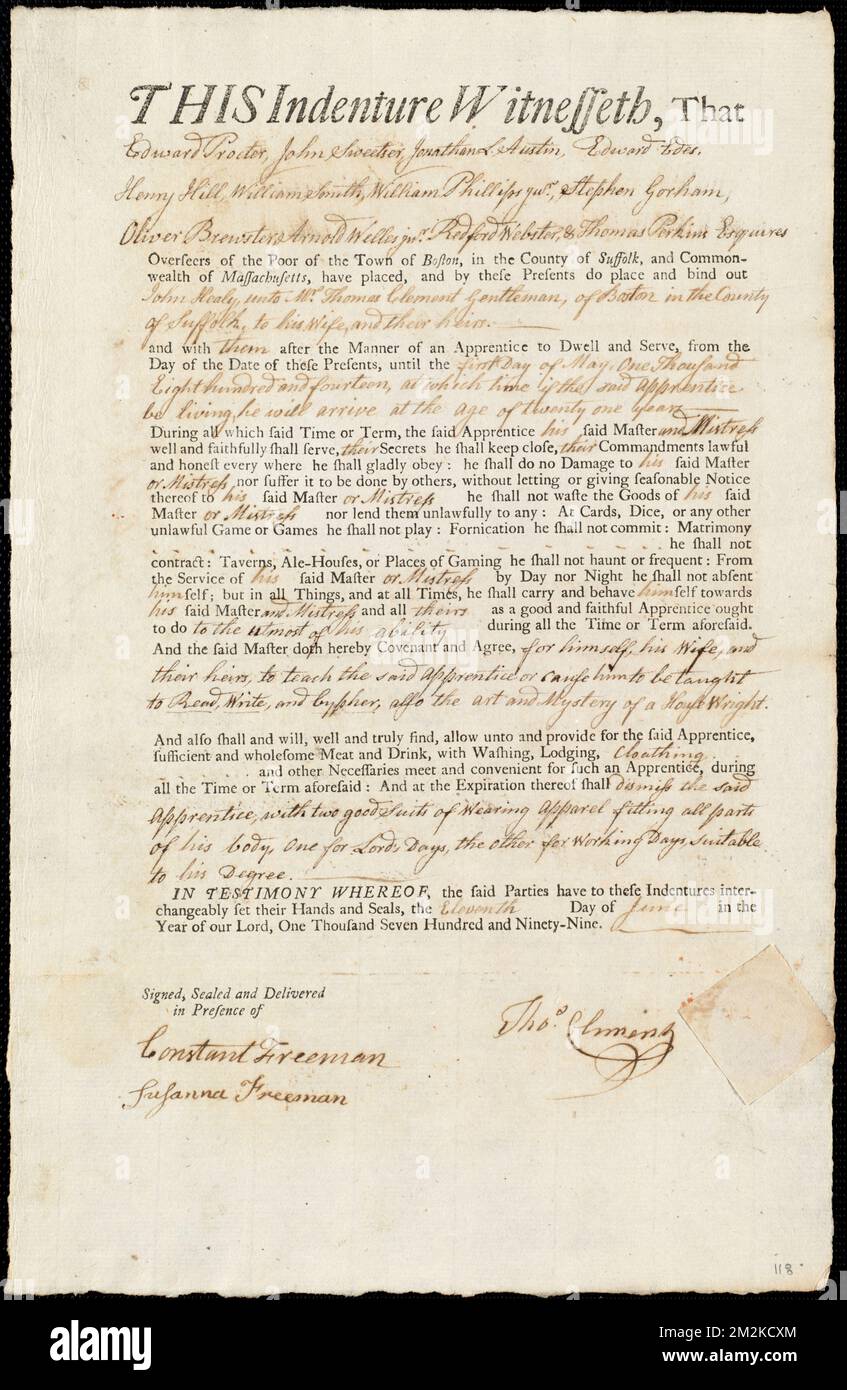 THIS Indenture Witneſſeth, That
Edward Procter, John Sweetser, Jonathan L. Austin, Edward Edes.
Henry Hill, William Smith, William Phillips junr., Stephen Gorham,
Oliver Brewster, Arnold Welles junr. Redford Webster, & Thomas Perkins Esquires
Overſeers of the Poor of the Town of Boſton, in the County of Suffolk, and Common-
wealth of Maſſachuſetts, have placed, and by theſe Preſents do place and bind out
John Healy, unto Mr. Thomas Clement Gentleman, of Boston in the County
of Suffolk, to his Wife, and their heirs.
and with them after the Manner of an Apprentice to Dwell and Serve, from the
Day of the Date of theſe Preſents, until the first Day of May, One Thousand
Eight hundred and fourteen, at which time if the said Apprentice
be living, he will arrive at the age of twenty one years
During all which ſaid Time or Term, the ſaid Apprentice his ſaid Maſter and Mistreſs
well and faithfully ſhall ſerve, their Secrets he ſhall keep cloſe, their Commandments lawful
and honeſt every where he ſhall gladly obey: he ſhall do no Damage to his ſaid Maſter
or Mistreſs, nor ſuffer it to be done by others, without letting or giving ſeaſonable Notice
thereof to his ſaid Maſter or Mistreſs he ſhall not waſte the Goods of his ſaid
Maſter or Mistreſs nor lend them unlawfully to any: At Cards, Dice, or any other
unlawful Game or Games he ſhall not play: Fornication he ſhall not commit: Matrimony
he ſhall not
contract: Taverns, Ale-Houſes, or Places of Gaming he ſhall not haunt or frequent: From
the Service of his ſaid Maſter or Mistreſs by Day nor Night he ſhall not abſent
himſelf; but in all Things, and at all Times, he ſhall carry and behave himſelf towards
his ſaid Maſter and Mistreſs and all theirs as a good and faithful Apprentice ought
to do to the utmost of his ability during all the Time or Term aforeſaid.
And the ſaid Maſter doth hereby Covenant and Agree, for himself, his Wife, and
their heirs, to teach the said Apprentice or cauſe him to be taught
to Read, Write, and Cypher, alſo the art and Mystery of a Wright.
And alſo ſhall and will, well and truly find, allow unto and provide for the ſaid Apprentice,
ſufficient and wholeſome Meat and Drink, with Waſhing, Lodging, Cloathing
and other Neceſſaries meet and convenient for ſuch an Apprentice, during
all the Time or Term aforeſaid: And at the Expiration thereof ſhall dismiſs the said
Apprentice, with two good Suits of Wearing Apparel fitting all parts
of his body, One for Lords Days, the other for Working Days, suitable
to his Degree.
IN TESTIMONY WHEREOF, the ſaid Parties have to theſe Indentures inter-
changeably ſet their Hands and Seals, the Eleventh Day of June in the
Year of our Lord, One Thouſand Seven Hundred and Ninety-Nine.
Signed, Sealed and Delivered
in Preſence of
Thos. Clement
Constant Freeman
Suſanna Freeman
118
alamy
Image ID: 2M2KCXM
www.alamy.com